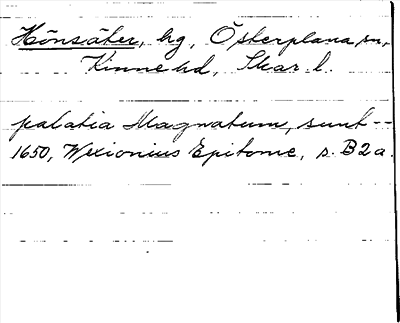 Hönsäter, hg, Österplana sn,
Kinne hd, Skar. l.
palatia Magnatum, sunt --
1650, Wexionius Epitome, s. B2a.